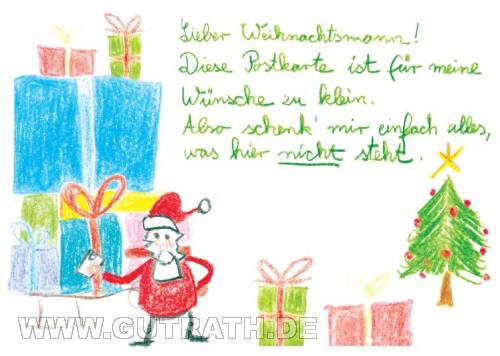 Lieber Weihnachtsmann!
Diese Postkarte ist für meine
Wünsche zu klein.
Also schenk' mir einfach alles,
was hier nicht steht.
WWW.GUTRATH.DE